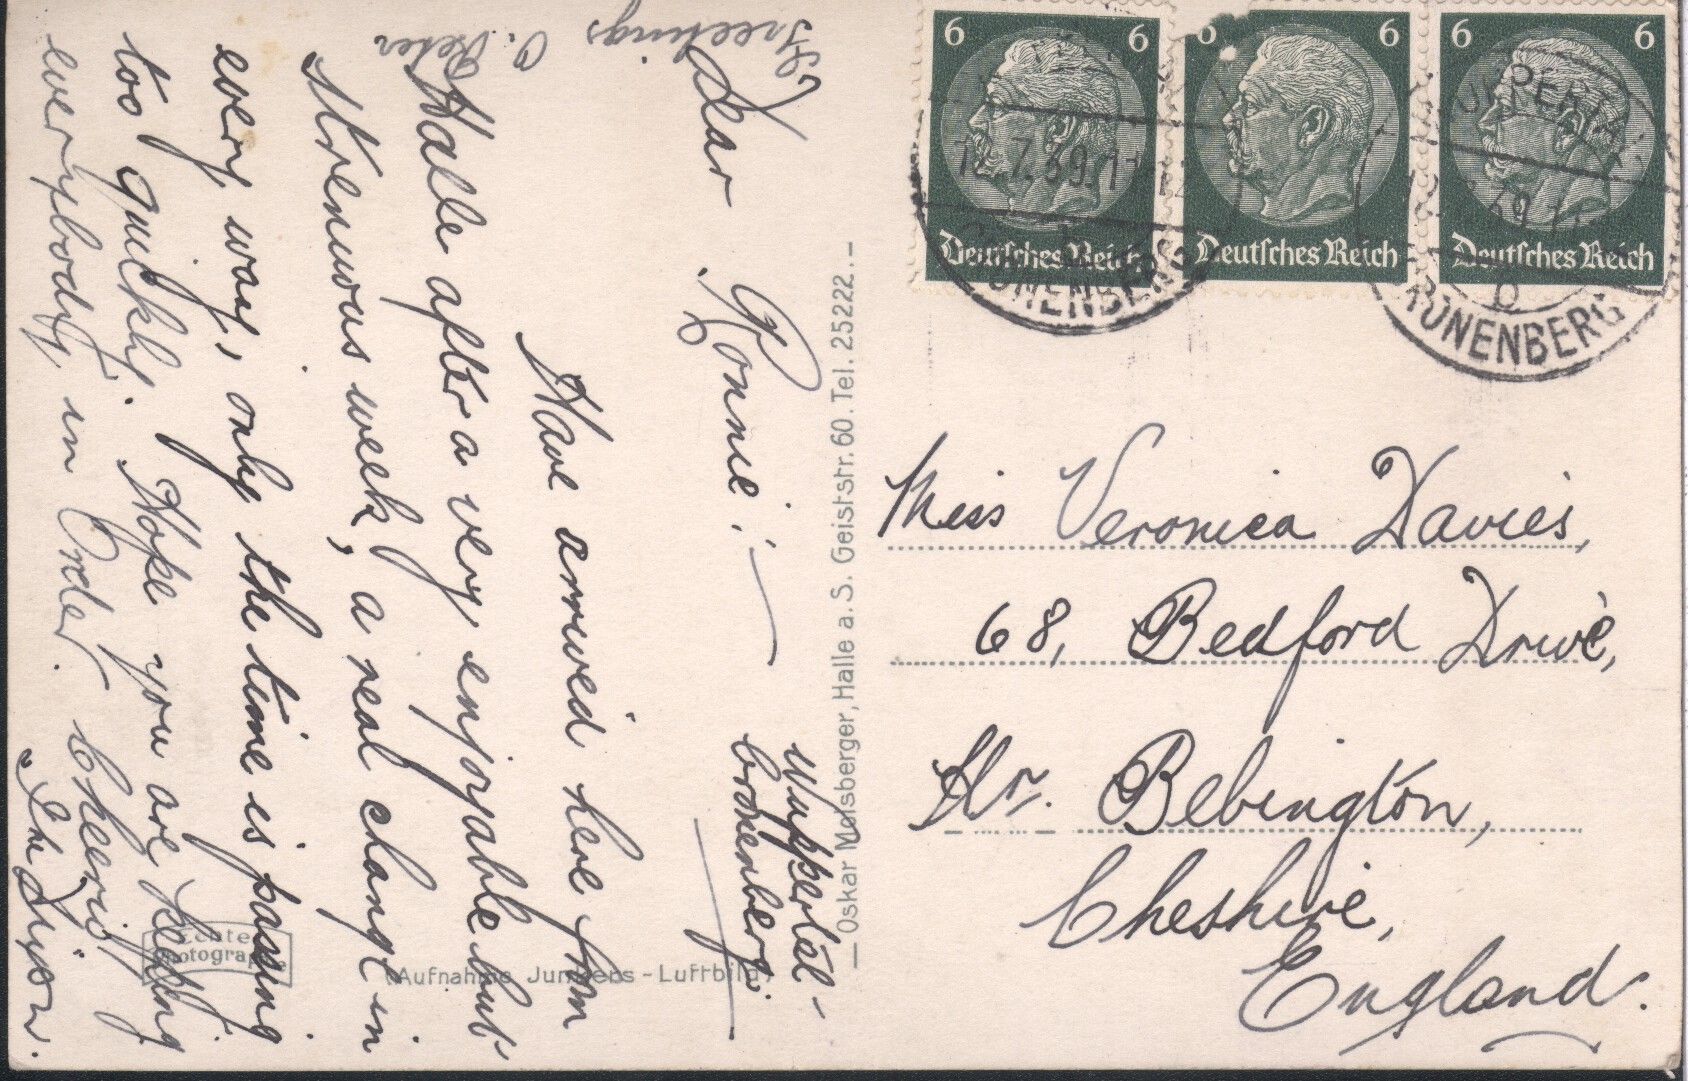 Wuppertal-
Cronenberg.
Dear Ronnie! —
Have arrived here from
Halle after a very enjoyable but
strenuous week, a real change in
every way, only the time is passing
too quickly. Hope you are keeping
everybody in Order. Cheerio,
Greetings
O.
Miss Veronica Davies,
68, Bedford Drive,
Hr. Bebington,
Cheshire,
England.
6 6
Deutsches Reich
6 6
Deutsches Reich
6 6
Deutsches Reich
7.39.11
WUPPERTAL
b
CRONENBERG
— Oskar Malsberger, Halle a. S. Geiststr. 60. Tel. 25222. —
Echte
Photographie
(Aufnahme Junkers - Luftbild)